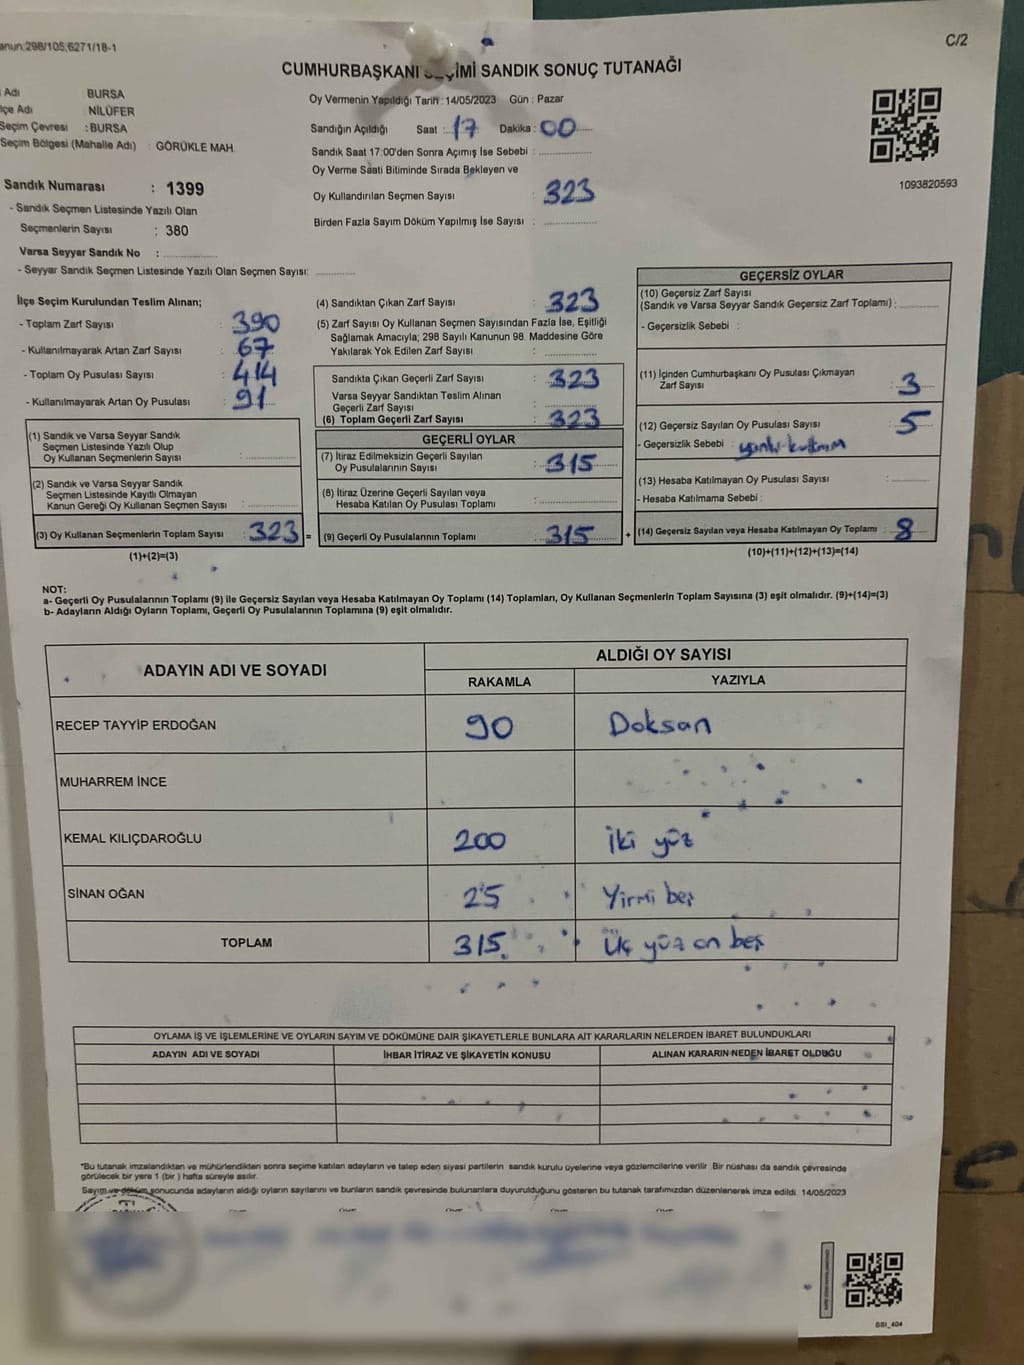 C/2
CUMHURBAŞKANI SEÇİMİ SANDIK SONUÇ TUTANAĞI
Adı BURSA
Adı NİLÜFER
Seçim Çevresi : BURSA
Seçim Bölgesi (Mahalle Adı) : GÖRÜKLE MAH.
Sandık Numarası : 1399
- Sandık Seçmen Listesinde Yazılı Olan
Seçmenlerin Sayısı : 380
Varsa Seyyar Sandık No :
- Seyyar Sandık Seçmen Listesinde Yazılı Olan Seçmen Sayısı:
Oy Vermenin Yapıldığı Tarih : 14/05/2023 Gün : Pazar
Sandığın Açıldığı Saat : 17 Dakika : 00
Sandık Saat 17:00'den Sonra Açımış İse Sebebi :
Oy Verme Saati Bitiminde Sırada Bekleyen ve
Oy Kullandırılan Seçmen Sayısı : 323
Birden Fazla Sayım Döküm Yapılmış İse Sayısı :
1093820593
İlçe Seçim Kurulundan Teslim Alınan;
- Toplam Zarf Sayısı : 390
- Kullanılmayarak Artan Zarf Sayısı : 67
- Toplam Oy Pusulası Sayısı : 414
- Kullanılmayarak Artan Oy Pusulası : 91
(1) Sandık ve Varsa Seyyar Sandık
Seçmen Listesinde Yazılı Olup
Oy Kullanan Seçmenlerin Sayısı :
(2) Sandık ve Varsa Seyyar Sandık
Seçmen Listesinde Kayıtlı Olmayan
Kanun Gereği Oy Kullanan Seçmen Sayısı :
(3) Oy Kullanan Seçmenlerin Toplam Sayısı : 323 =
(1)+(2)=(3)
(4) Sandıktan Çıkan Zarf Sayısı : 323
(5) Zarf Sayısı Oy Kullanan Seçmen Sayısından Fazla İse, Eşitliği
Sağlamak Amacıyla; 298 Sayılı Kanunun 98. Maddesine Göre
Yakılarak Yok Edilen Zarf Sayısı :
Sandıkta Çıkan Geçerli Zarf Sayısı : 323
Varsa Seyyar Sandıktan Teslim Alınan
Geçerli Zarf Sayısı :
(6) Toplam Geçerli Zarf Sayısı : 323
GEÇERLİ OYLAR
(7) İtiraz Edilmeksizin Geçerli Sayılan
Oy Pusulalarının Sayısı : 315
(8) İtiraz Üzerine Geçerli Sayılan veya
Hesaba Katılan Oy Pusulası Toplamı :
(9) Geçerli Oy Pusulalarının Toplamı : 315 +
GEÇERSİZ OYLAR
(10) Geçersiz Zarf Sayısı
(Sandık ve Varsa Seyyar Sandık Geçersiz Zarf Toplamı) :
- Geçersizlik Sebebi :
(11) İçinden Cumhurbaşkanı Oy Pusulası Çıkmayan
Zarf Sayısı : 3
(12) Geçersiz Sayılan Oy Pusulası Sayısı : 5
- Geçersizlik Sebebi :
(13) Hesaba Katılmayan Oy Pusulası Sayısı :
- Hesaba Katılmama Sebebi :
(14) Geçersiz Sayılan veya Hesaba Katılmayan Oy Toplamı : 8
(10)+(11)+(12)+(13)=(14)
NOT:
a- Geçerli Oy Pusulalarının Toplamı (9) ile Geçersiz Sayılan veya Hesaba Katılmayan Oy Toplamı (14) Toplamları, Oy Kullanan Seçmenlerin Toplam Sayısına (3) eşit olmalıdır. (9)+(14)=(3)
b- Adayların Aldığı Oyların Toplamı, Geçerli Oy Pusulalarının Toplamına (9) eşit olmalıdır.
ADAYIN ADI VE SOYADI ALDIĞI OY SAYISI
RAKAMLA YAZIYLA
RECEP TAYYİP ERDOĞAN 90 Doksan
MUHARREM İNCE
KEMAL KILIÇDAROĞLU 200 İki yüz
SİNAN OĞAN 25 Yirmi beş
TOPLAM 315 Üç yüz on beş
OYLAMA İŞ VE İŞLEMLERİNE VE OYLARIN SAYIM VE DÖKÜMÜNE DAİR ŞİKAYETLERLE BUNLARA AİT KARARLARIN NELERDEN İBARET BULUNDUKLARI
ADAYIN ADI VE SOYADI İHBAR İTİRAZ VE ŞİKAYETİN KONUSU ALINAN KARARIN NEDEN İBARET OLDUĞU
*Bu tutanak imzalandıktan ve mühürlendikten sonra seçime katılan adayların ve talep eden siyasi partilerin sandık kurulu üyelerine veya gözlemcilerine verilir. Bir nüshası da sandık çevresinde
görülecek bir yere 1 (bir) hafta süreyle asılır.
Sayım ve döküm sonucunda adayların aldığı oyların sayılarını ve bunların sandık çevresinde bulunanlara duyurulduğunu gösteren bu tutanak tarafımızdan düzenlenerek imza edildi. 14/05/2023